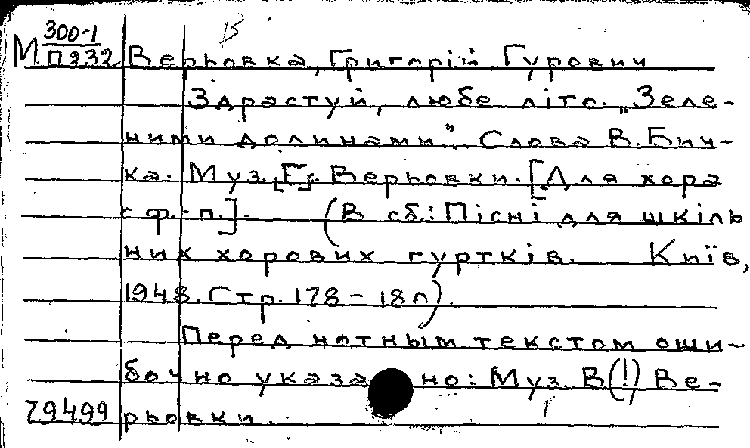 15
300-1
М П232 Верьовка, Григорій Гурович
Здрастуй, любе літо. „Зеле-
ними долинами". Слова В. Бич-
ка. Муз. [Г]. Верьовки. [Для хора
с ф.-п.]. (В сб.: Пісні для шкіль
них хорових гуртків. Київ,
1948. Стр. 178-180).
Перед нотным текстом оши-
бочно указано: Муз. В(!) Ве-
79499 рьовки.